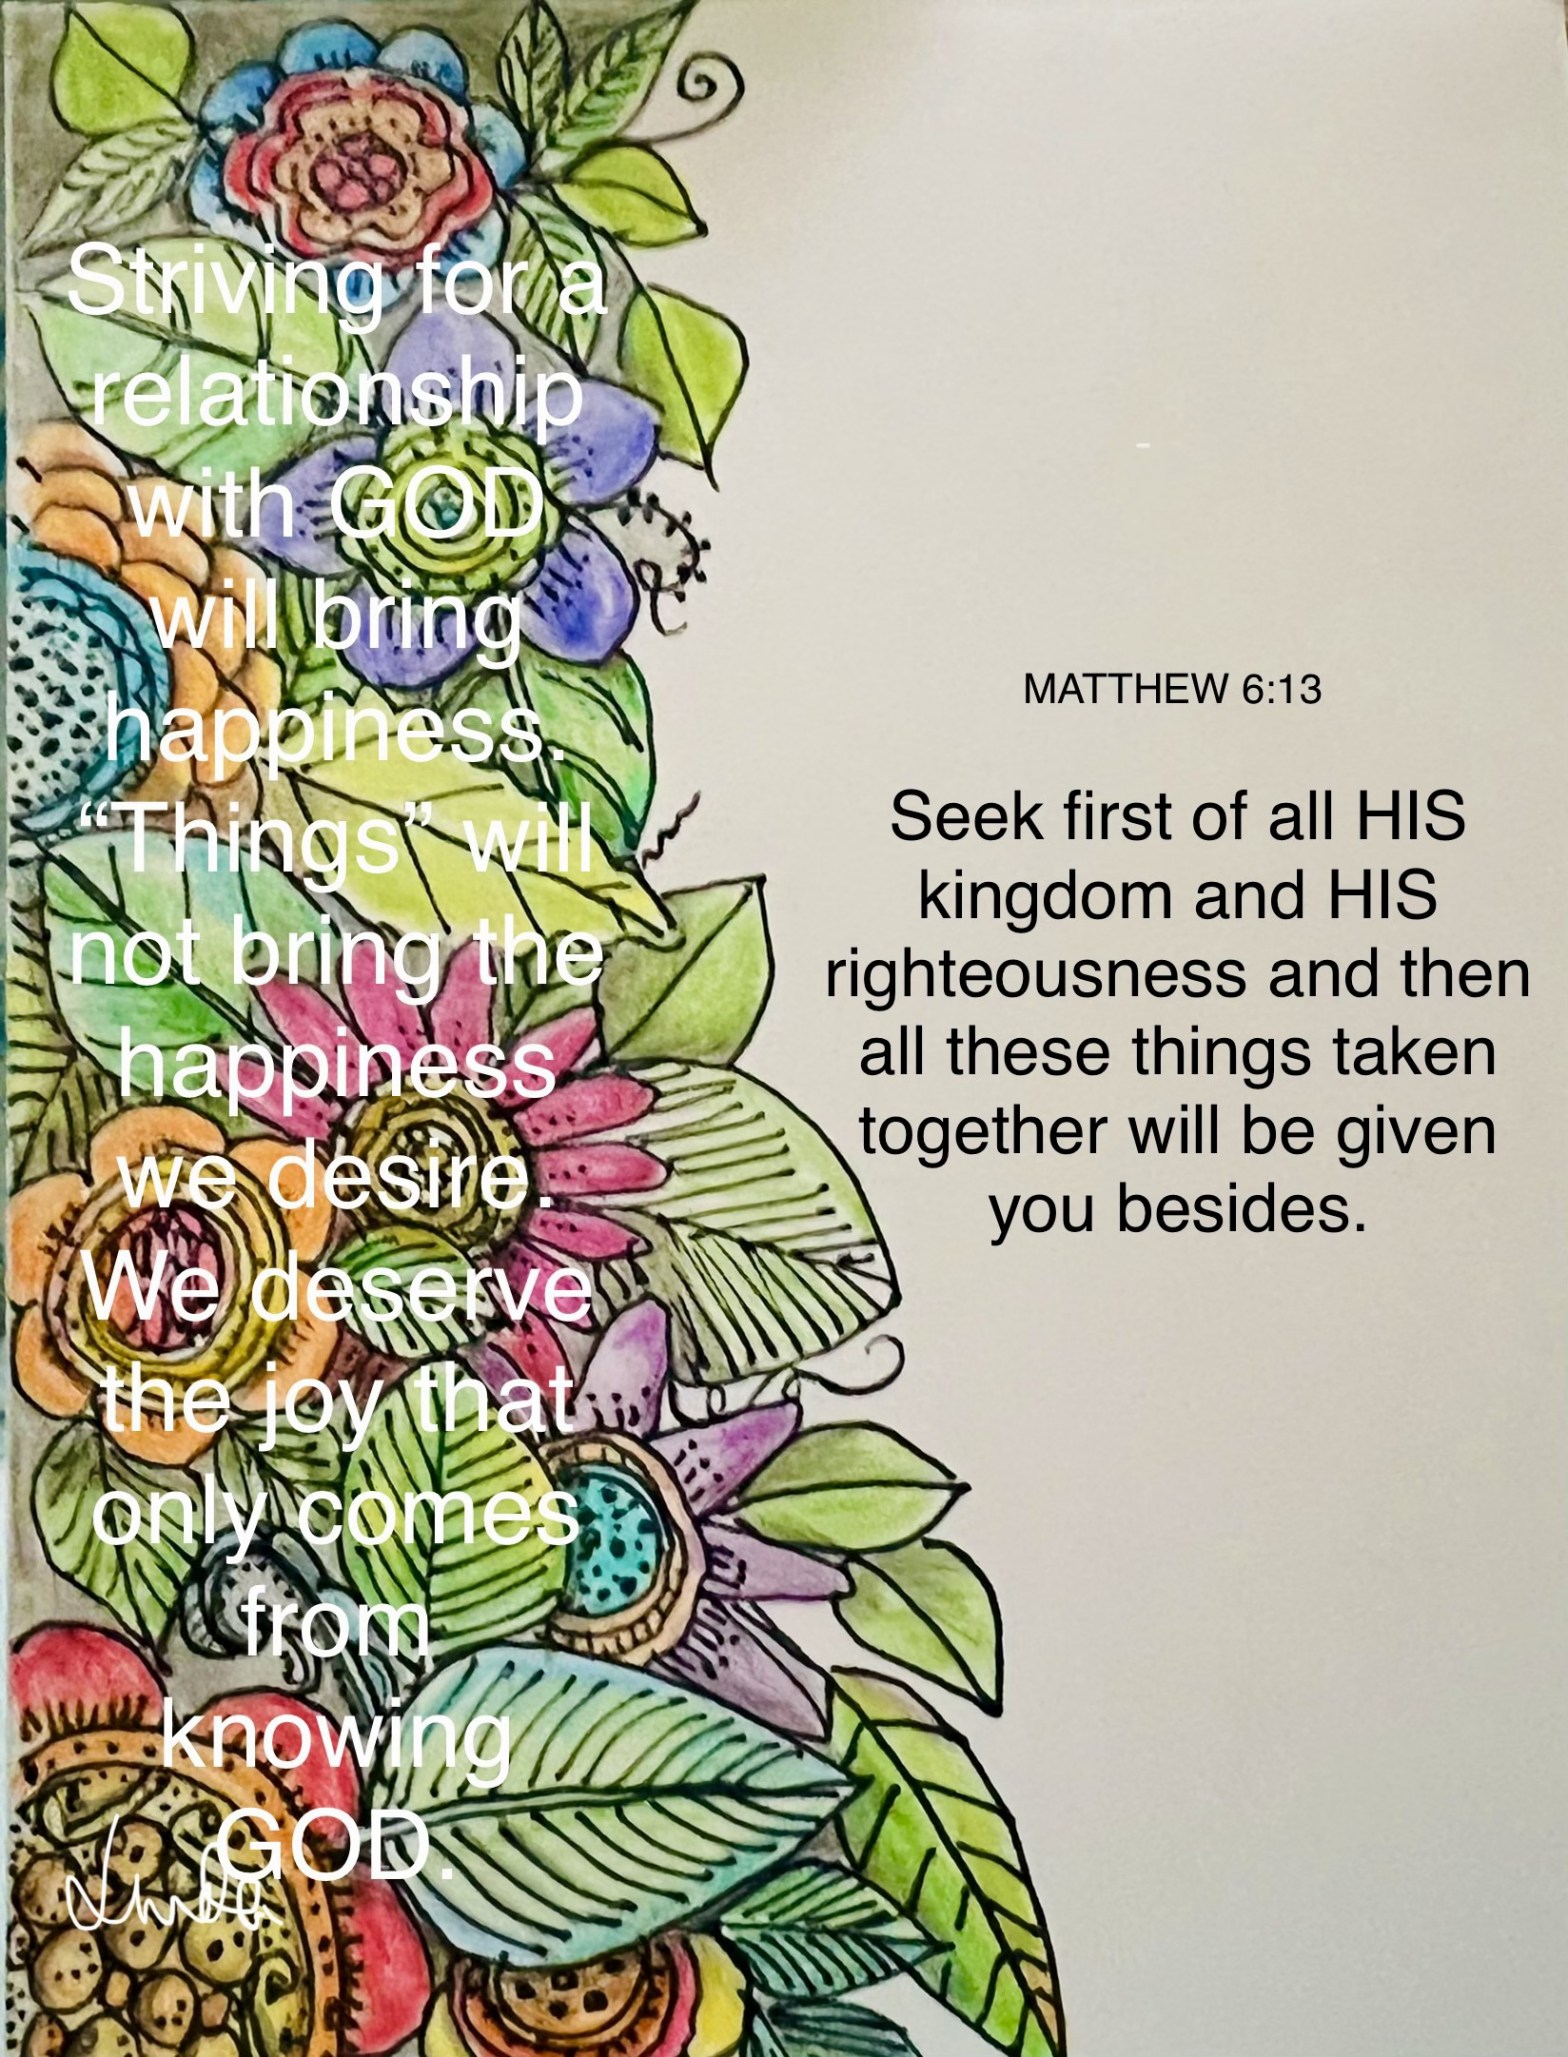 Striving for a
relationship
with GOD
will bring
happiness.
“Things” will
not bring the
happiness
we desire.
We deserve
the joy that
only comes
from
knowing
GOD.
Linda
-
MATTHEW 6:13
Seek first of all HIS
kingdom and HIS
righteousness and then
all these things taken
together will be given
you besides.